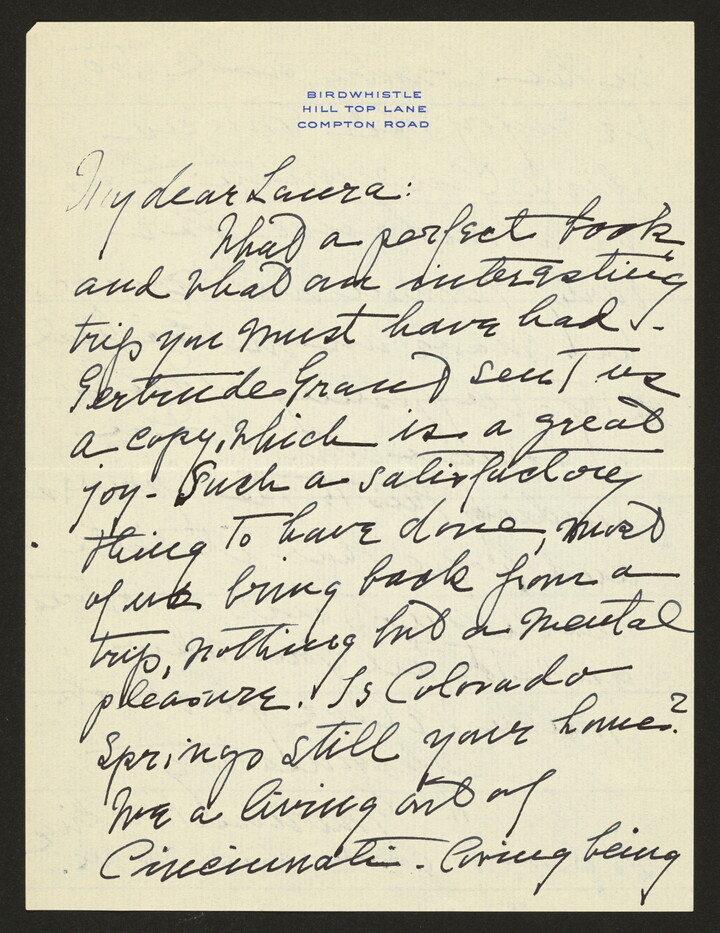 BIRDWHISTLE
HILL TOP LANE
COMPTON ROAD
My dear Laura:
What a perfect book
and what an interesting
trip you must have had -
Gertrude Grand sent us
a copy, which is a great
joy - Such a satisfactory
thing to have done, most
of us bring back from a
trip, nothing but a mental
pleasure. Is Colorado
Springs still your home?
We a living out of
Cincinnati - loving being